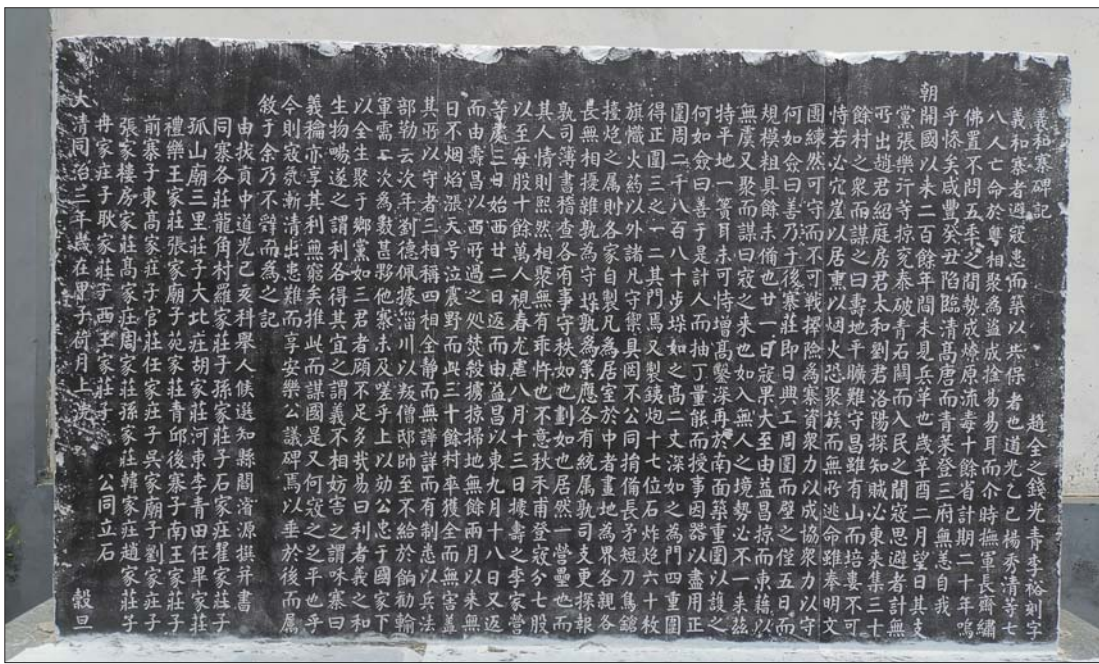 義和寨碑記 趙全之錢光青李裕刻字
義和寨者避寇患而築以共保者也道光乙巳楊秀清等七
八人亡命於粵相聚為盜成捻易易耳而介時撫軍長齋繡
佛置不問五季之間勢成燎原流毒十餘省計期二十年嗚
乎慘矣咸豐癸丑陷臨清高唐而青萊登三府無恙自我
朝開國以來二百餘年間未見兵革也歲辛酉二月望日其支
黨張樂行等掠兗泰破青石關而入民之聞寇思避者計無
所出趙君紹庭房君太和劉君洛陽探知賊必東來集三十
餘村之衆而謀之曰壽地平曠難守昌雖有山而培塿不可
恃若必穴崖以居熏以烟火恐聚簇而無所逃命雖奉明文
團練然可守而不可戰擇險為寨資衆力以成協衆力以守
何如僉曰善乃于後寨莊即日興工周圍而壁之僅五日而
規模粗具餘未備也廿一日寇果大至由益昌掠而東藉以
無虞又聚而謀曰寇之來也如入無人之境勢必不一来茲
特平地一簣耳未可恃增高鑿深再於南面築重圍以護之
何如僉曰善于是計人而抽丁量能而授事因器以盡用正
圍周二千八百八十步垛如之高二丈深如之為門四重圍
得正圍三之一二其門焉又製銕炮十七位石炸炮六十枚
旗幟火葯以外諸凡守禦具罔不公同捐備長矛短刀鳥鎗
擡炮之屬則各家自製凡為居室於中者畫地為界各親各
長無相擾雜孰為守垛孰為策應各有統属孰司支更探報
孰司簿書稽查各有事守秩如也劃如也居然一營壘也而
其人情則熙然相聚無有乖忤也不意秋禾甫登寇分七股
以至每股十餘萬人視春尤虐八月十三日據壽之李家營
等處三日始西廿二日返而由益昌以東九月十八日又返
而由壽昌以西所過之処焚殺擄掠掃地無餘兩月以来無
日不烟焰漲天号泣震野而此三十餘村卒獲全而無害蓋
其所以守者三相稱四相全靜而無譁詳而有制悉以兵法
部勒云次年劉德佩據淄川以叛僧邸帥至不給於餉勸輸
軍需二次為數甚夥他寨未及嗟乎上以効公忠于國家下
以全生聚于鄉黨如三君者顧不足多哉易曰利者義之和
生物暢遂之謂利各得其宜之謂義不相妨害之謂味寨曰
義稱亦享其利無窮矣推此而謀國是又何寇之之平也乎
今則寇氛漸清出患難而享安樂公議碑焉以垂於後而属
敘于余乃不辭而為之記
由拔貢中道光己亥科舉人候選知縣閻湑源撰并書
同寨各莊龍角村羅家莊子孫家莊子石家庄瞿家莊子
孤山廟三里莊子大北庄胡家莊河東李青田任畢家莊
禮樂王家莊張家廟子苑家莊青邱後寨子南王家莊子
前寨子東高家莊子官莊任家庄子吳家廟子劉家庄子
張家樓房家莊高家庄周家莊孫家莊韓家庄趙家莊子
冉家庄子耿家莊子西王家莊子 公同立石
大清同治三年歲在甲子荷月上浣 穀旦